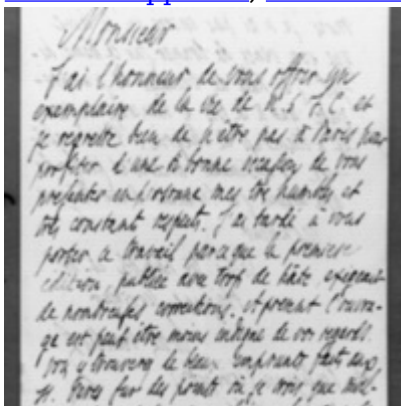 Monsieur
J'ai l'honneur de vous offrir un
exemplaire de la vie de N. S. J. C. et
je regrette bien de n'être pas à Paris pour
profiter d'une si bonne occasion de vous
présenter en personne mes très humbles et
très constant respects. J'ai tardé à vous
porter ce travail parce que la première
édition, publiée avec trop de hâte exigeait
de nombreuses corrections. et prenant l'ouvra-
ge est peut être moins indigne de vos regards.
Vous y trouverez de beaux emprunts faits aux
Pères sur des points où je crois que